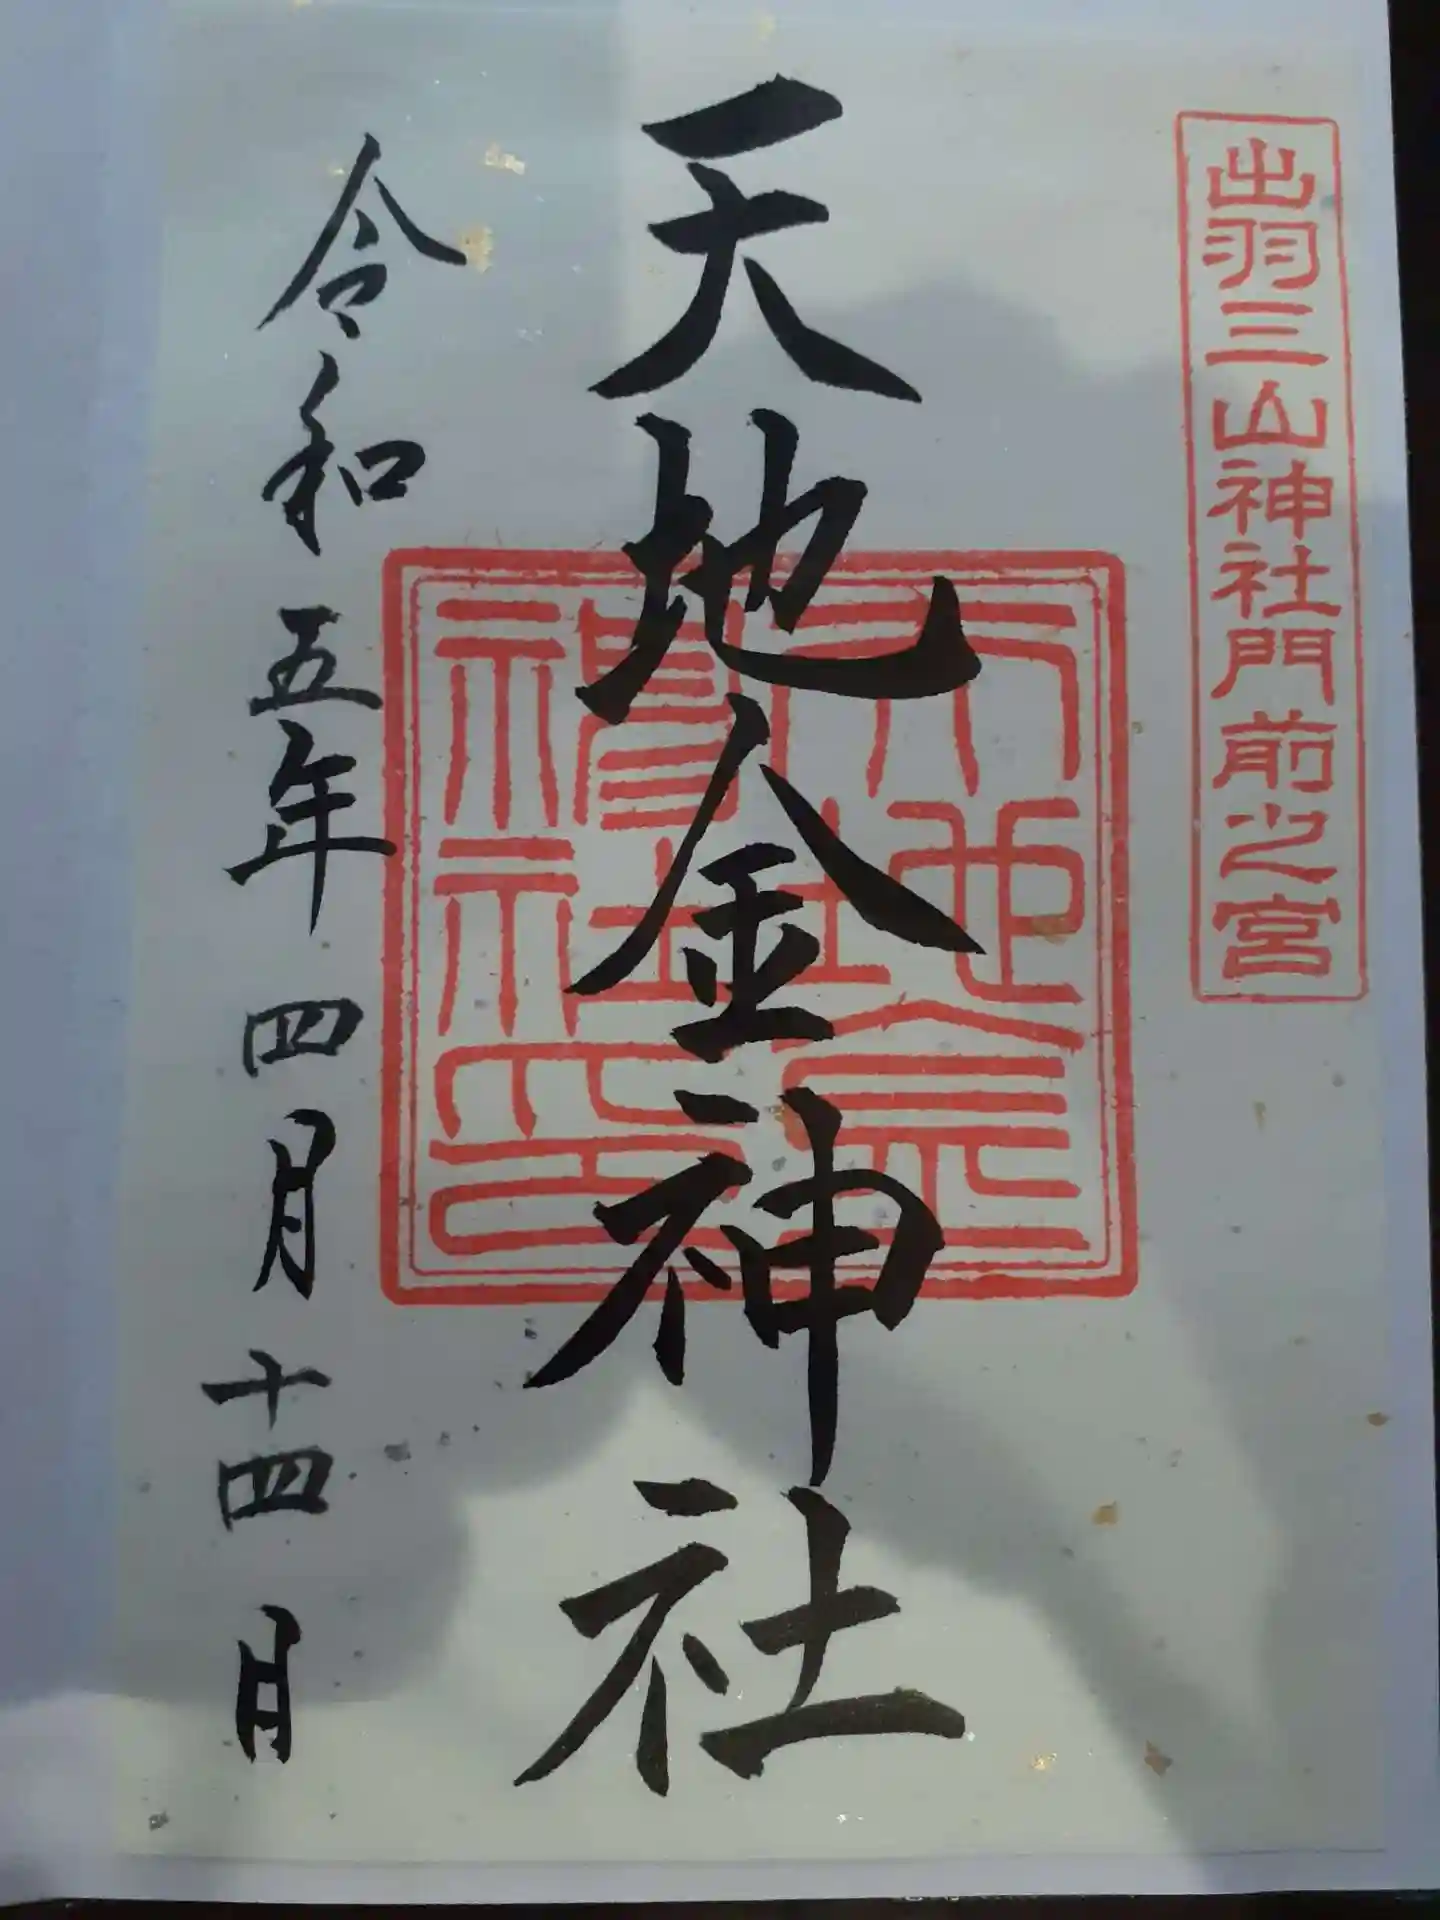 出羽三山神社門前之宮
天地金神社
天地金神社印
令和五年四月十四日